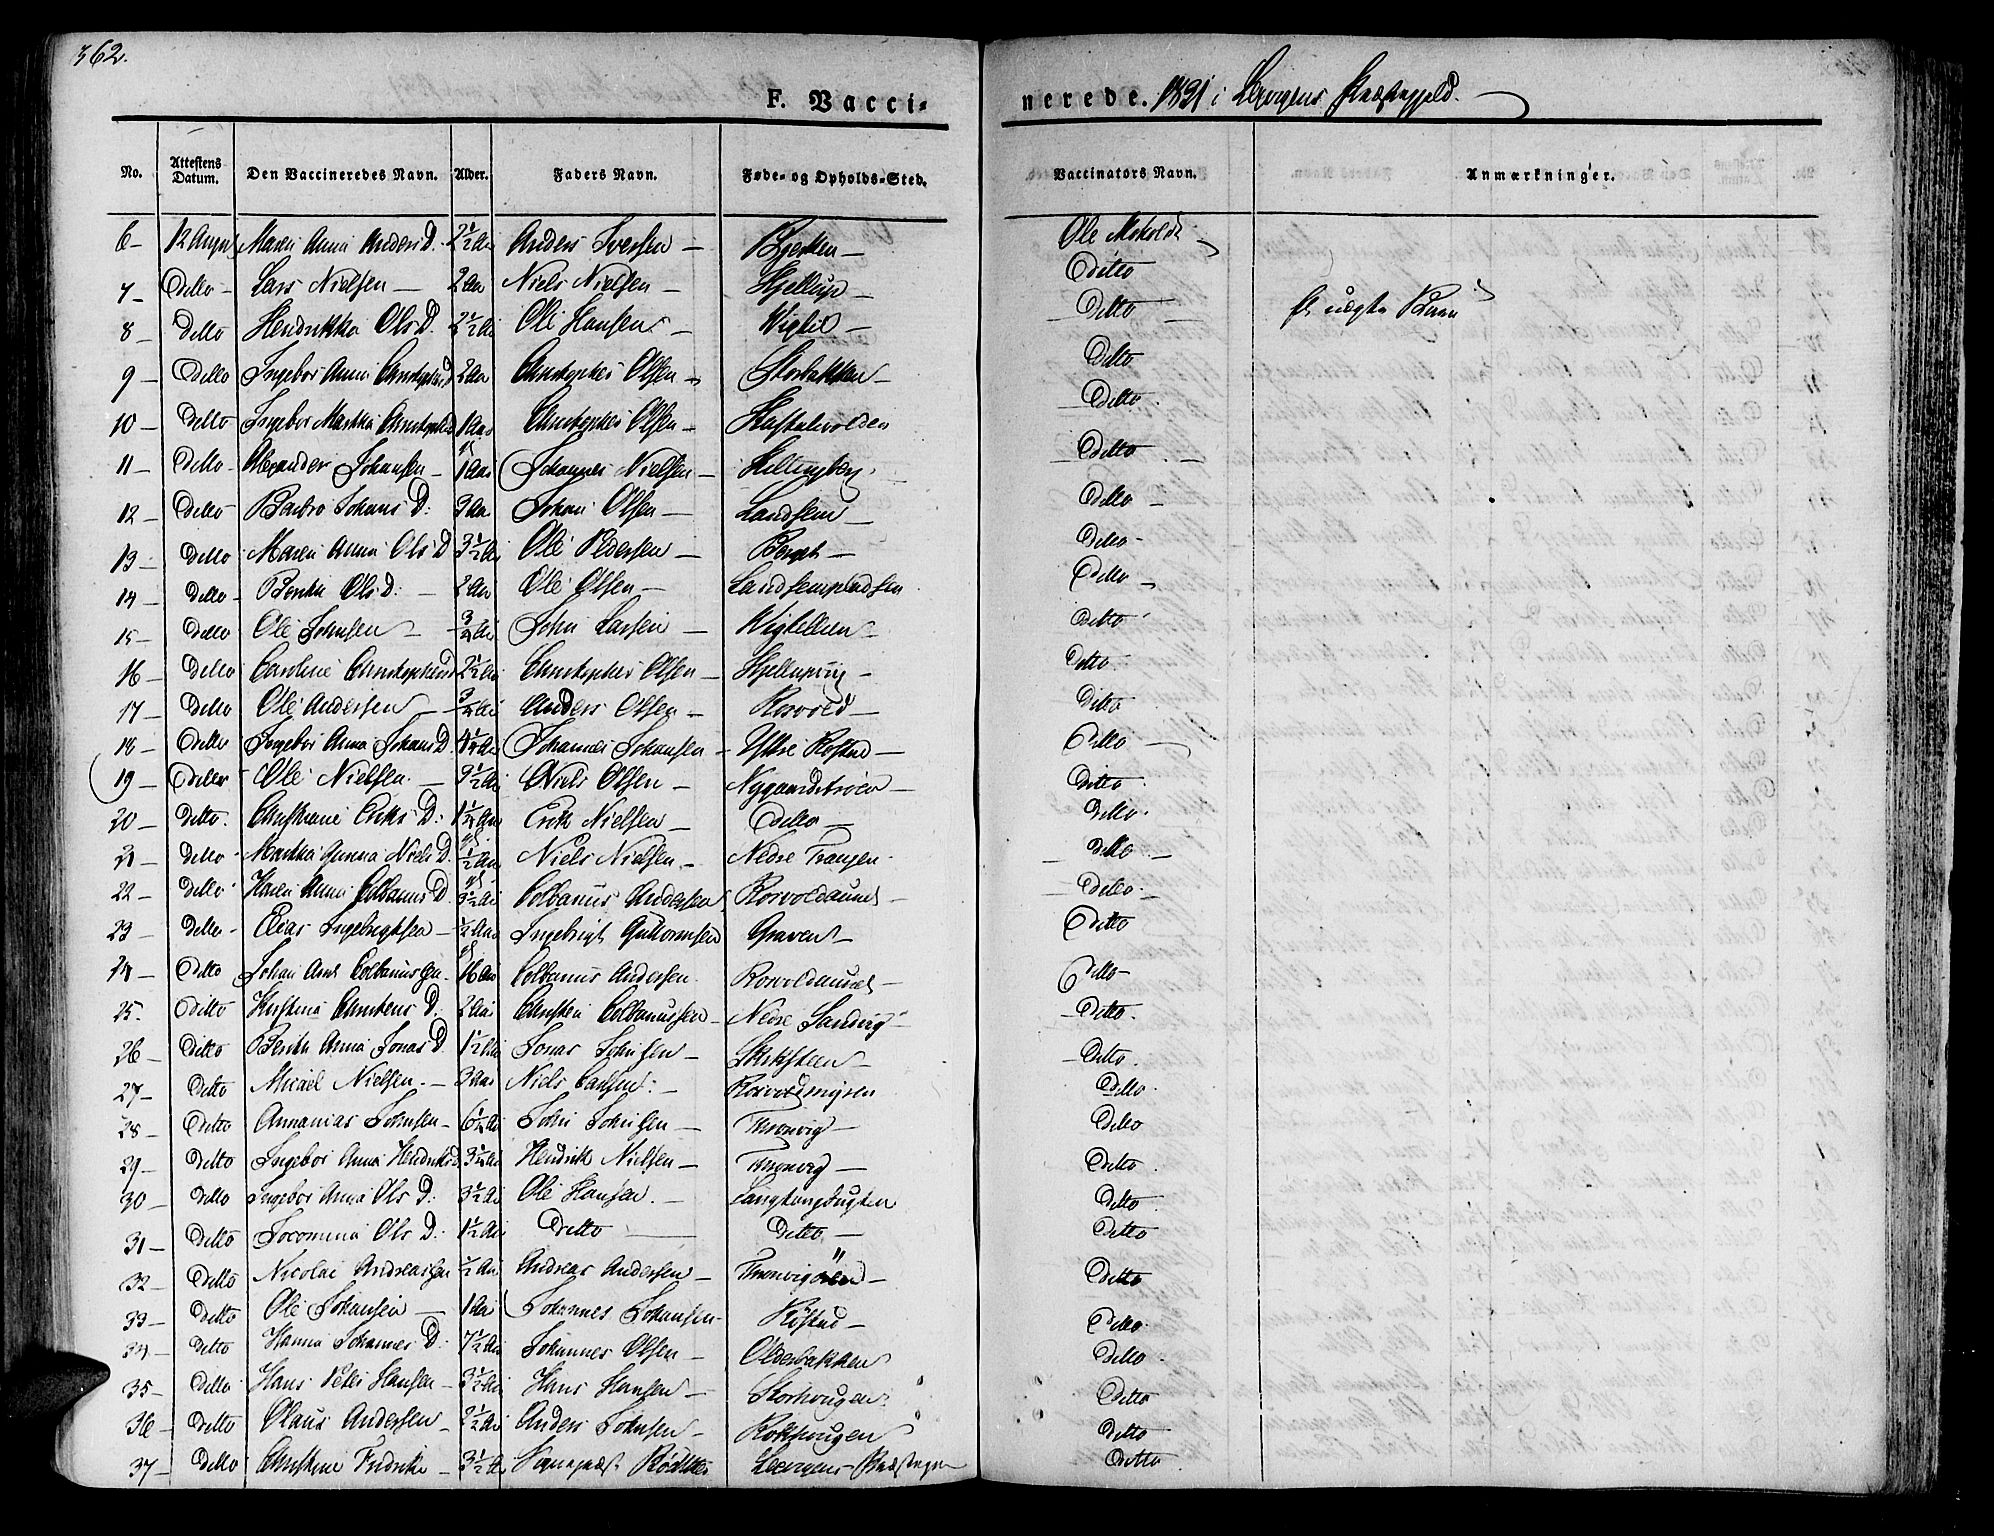 362.
F. Vacci-
nerede. 1831 i Præstegjeld.
No. Attestens Datum. Den Vaccineredes Navn. Alder. Faders Navn. Føde- og Opholds-Sted. Vaccinators Navn. Anmærkninger.
6 - 12 August Maren Anna Anders D. 2 1/2 Aar Anders Iversen - Bjerken - Ole
7 - Ditto - Lars Nielsen - 2 Aar Niels Nielsen - Hjellup - Ditto
8 - Ditto Hendrikka Ols D. 2 1/2 Aar Ole Hansen - - Ditto uægte Barn
9 - Ditto Ingebor Anna Christophers D 2 Aar Christopher Olsen - Storbakken - Ditto
10 - Ditto Ingebor Martha Christophers D 1 Aar Christopher Olsen - Ditto
11 - Ditto - Alexander Johansen - 1 Aar Johannes Nielsen - Hellingberg Ditto -
12 - Ditto Barbro Johans D: 3 Aar Johan Olsen - Landsem - Ditto -
13 - Ditto Maren Anna Ols D 3 1/2 Aar Ole Pedersen - Berget - Ditto -
14 - Ditto - Berthe Ols D. - 2 Aar Ole Olsen - Ditto -
15 - Ditto Ole Johnsen - 3/4 Aar John Larsen - Ditto
16 - Ditto Caroline Christophers D 2 1/2 Aar Christopher Olsen - - Ditto
17 - Ditto Ole Andersen - 3/4 Aar Anders Olsen - Rosvold - Ditto
18 - Ditto Ingebor Anna Johans D. 4 1/4 Aar Johannes Johansen - Yttre Røstad - Ditto -
19 - Ditto Ole Nielsen - 3 1/2 Aar Niels Olsen - Ditto
20 - Ditto. Christiane Eriks D: 1 1/4 Aar Erik Nielsen - Ditto - Ditto.
21 - Ditto - Martha Gunna Niels D. 1/2 Aar Niels Nielsen - Nedre Trangen - Ditto -
22 - Ditto Karen Anna Colbanus D. 3 1/2 Aar Colbanus Andersen Rosvoldaunet - Ditto.
23 - Ditto - Elias Ingebrigtsen - 1/2 Aar Ingebrigt Guttormsen Graven - Ditto
24 - Ditto Johan Arnt Colbanus Søn - 16 Aar Colbanus Andersen. Rosvoldaunet - Ditto -
25. Ditto Kirstina Christens D. 2 Aar Christen Colbanussen - Nedre Sandvig - Ditto.
26 - Ditto Berith Anna Jonas D. 1 1/2 Aar Jonas Johnsen - Ditto.
27 - Ditto Micael Nielsen. - 3 Aar Niels - Rosvoldmyren Ditto.
28 - Ditto Annanias Johnsen - 6 1/4 Aar John Johnsen - Thronvig - Ditto
29 - Ditto Ingebor Anna Hendriks D 3 1/4 Aar Hendrik Nielsen - Thronvig - Ditto.
30 - Ditto Ingebor Anna Ols D: 3 1/2 Aar Ole Hansen. - Ditto
31 - Ditto Jocomina Ols D. 1 1/2 Aar Ditto - Ditto - Ditto
32 - Ditto Nicolai Andreassen 1/2 Aar Andreas Andersen - - Ditto
33 - Ditto Ole Johansen - 1 Aar Johannes Johansen - Røstad - Ditto.
34 - Ditto Hanna Johannes D. 7 1/2 Aar Johannes Olsen - Olderbakken Ditto.
35 - Ditto Hans Peter Hansen - 3 1/2 Aar Hans Hansen - Storhougen Ditto
36 - Ditto Olaus Andersen - 2 1/2 Aar Anders Johnsen - Rokhougen Ditto
37 - Ditto Christine Fredrike - 3 1/2 Aar Sognepræst Ditto.